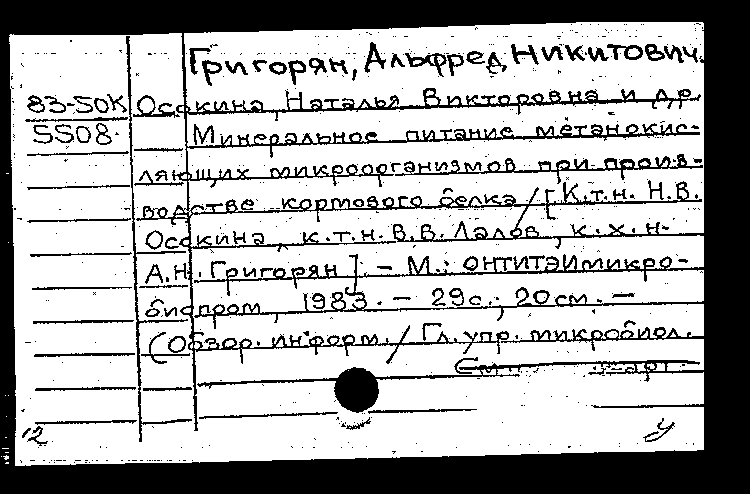 Григорян, Альфред Никитович.
83-50К Осокина, Наталья Викторовна и др.
5508. Минеральное питание метанокис-
ляющих микроорганизмов при произ-
водстве кормового белка / [К.т.н. Н.В.
Осокина, к.т.н. В.В. Лалов, к.х.н.
А.Н. Григорян]. - М.: ОНТИТЭИмикро-
биопром, 1983. - 29с.; 20см. -
(Обзор. информ. / Гл. упр. микробиол.
12 У